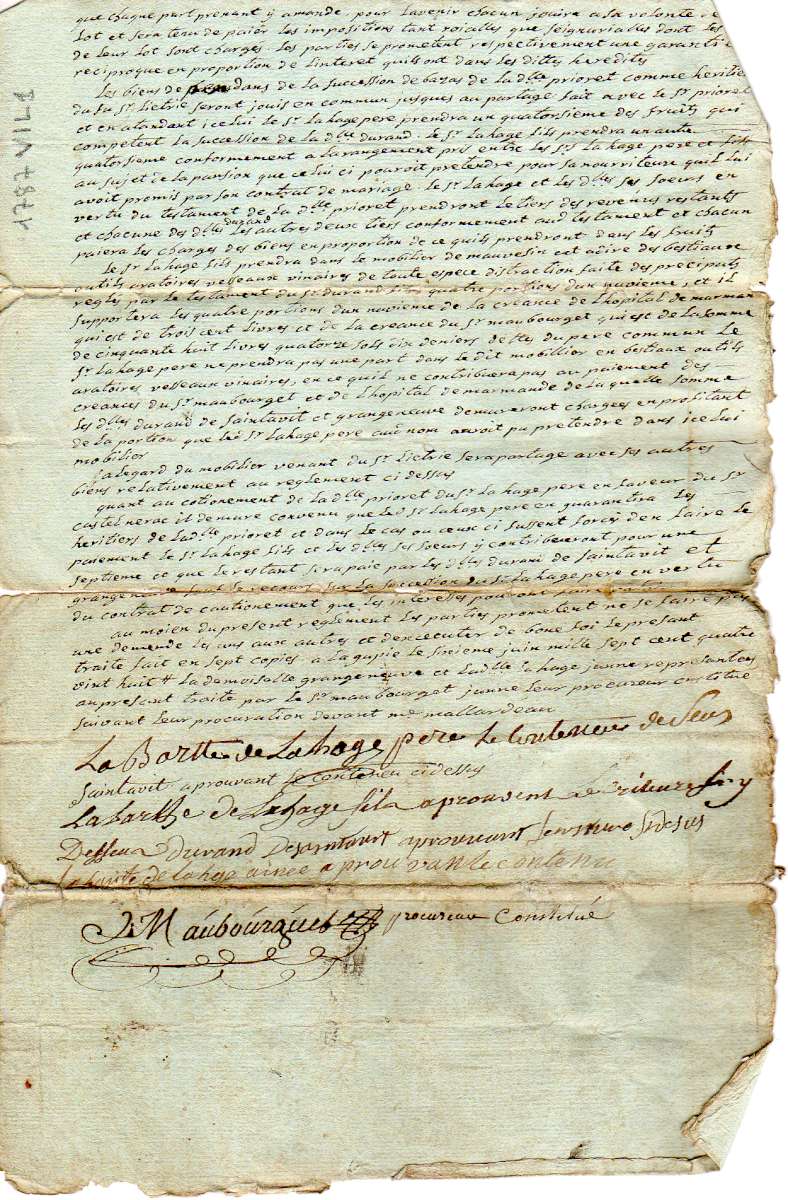 que chaque part prenant y amande. pour lavenir chacun jouira a sa volonté
Lot et sera tenu de paier les impositions tant roiales que seigneuriales dont les
de leur lot sont chargés. Les parties se prometent respectivement une garanti
reciproque en proportion de linteret quils ont dans les dittes heredités
Les biens de dans de la succession de bazas de la dlle prioret comme heriti
du fu sr Lietrie seront jouis en commun jusques au partage fait avec le sr prioret
et en atandant icelui le sr Lahage pere prendra un quatorsieme des fruits qui
competent la succession de la dlle durand. le sr Lahage fils prendra un autre
quatorsieme conformement a larangement pris entre les srs Lahage pere et fils
au sujet de la pansion que celui ci pouroit pretendre pour sa nourriteure quil lui
avoit promis par son contrat de mariage. le sr Lahage et les dlles ses soeurs en
vertu du testament de la dlle prioret prendront le tiers des revenus restants
et chacune des dlles durand les autres deux tiers conformement aud testament et chacun
paiera les charges des biens en proportion de ce quils prendront dans les fruits
Le sr Lahage fils prendra dans le mobilier de mauvesin cet adire des bestiaux
outils aratoires vesseaux vinaires de toute espece distraction faite des precipats
reglés par le testament du sr durand quatre portions dun nuvieme, et il
supportera les quatre portions dun nuvieme de la creance de Lhopital de marman
qui est de trois cent livres et de la creance du sr maubourget qui est de la somme
de cinquante huit livres quatorze sols dix deniers dettes du pere commun Le
sr Lahage pere ne prendra pas une part dans le dit mobillier en bestiaux outils
aratoires vesseaux vinaires, en ce quil ne contribuera pas au paiement des
creances du sr maubourget et de Lhopital de marmande de la quelle somme
Les dlles durand de saintavit et grangeneuve demureront chargées en profitant
de la portion que le sr Lahage pere aud nom auroit pu pretendre dans icelui
mobilier
a Legard du mobilier venant du sr Lietrie sera partagé avec ses autres
biens relativement au reglement ci dessus
quant au cotionement de la dlle prioret du sr Lahage pere en faveur du sr
castelnerac il demure convenu que le sr Lahage pere en guarantira les
heritiers de la dlle prioret et dans le cas ou ceux ci fussent forcés den faire le
paiement le sr Lahage fils et les dlles ses soeurs y contribueront pour une
septieme et que le restant sera paié par les dlles durand de saintavit et
grangeneuve sauf le recours sur la succession du sr Lahage pere en vertu
du contrat de cautionement que les interessés pouront
au moien du present reglement les parties prometent ne se faire
une demende les uns aux autres et dexecuter de bone foi le present
traité fait en sept copies a la gupie le sixieme juin mille sept cent quatre
vint huit la demoiselle grangeneuve et la dlle lahage junne represantées
au presant traité par le sr maubourget junne leur procureur constitué
suivant leur procuration devant me mallardeau
La Barthe de Lahage pere le contenu de sus
Saintavit aprouvant le contenu ci desus
La barthe de Lahage fils aprouvent
Durand Desaintavit aprouvant
la barthe de lahage ainée aprouvan le contenu
J. Maubourguet procureur Constitué
1787 VII 1